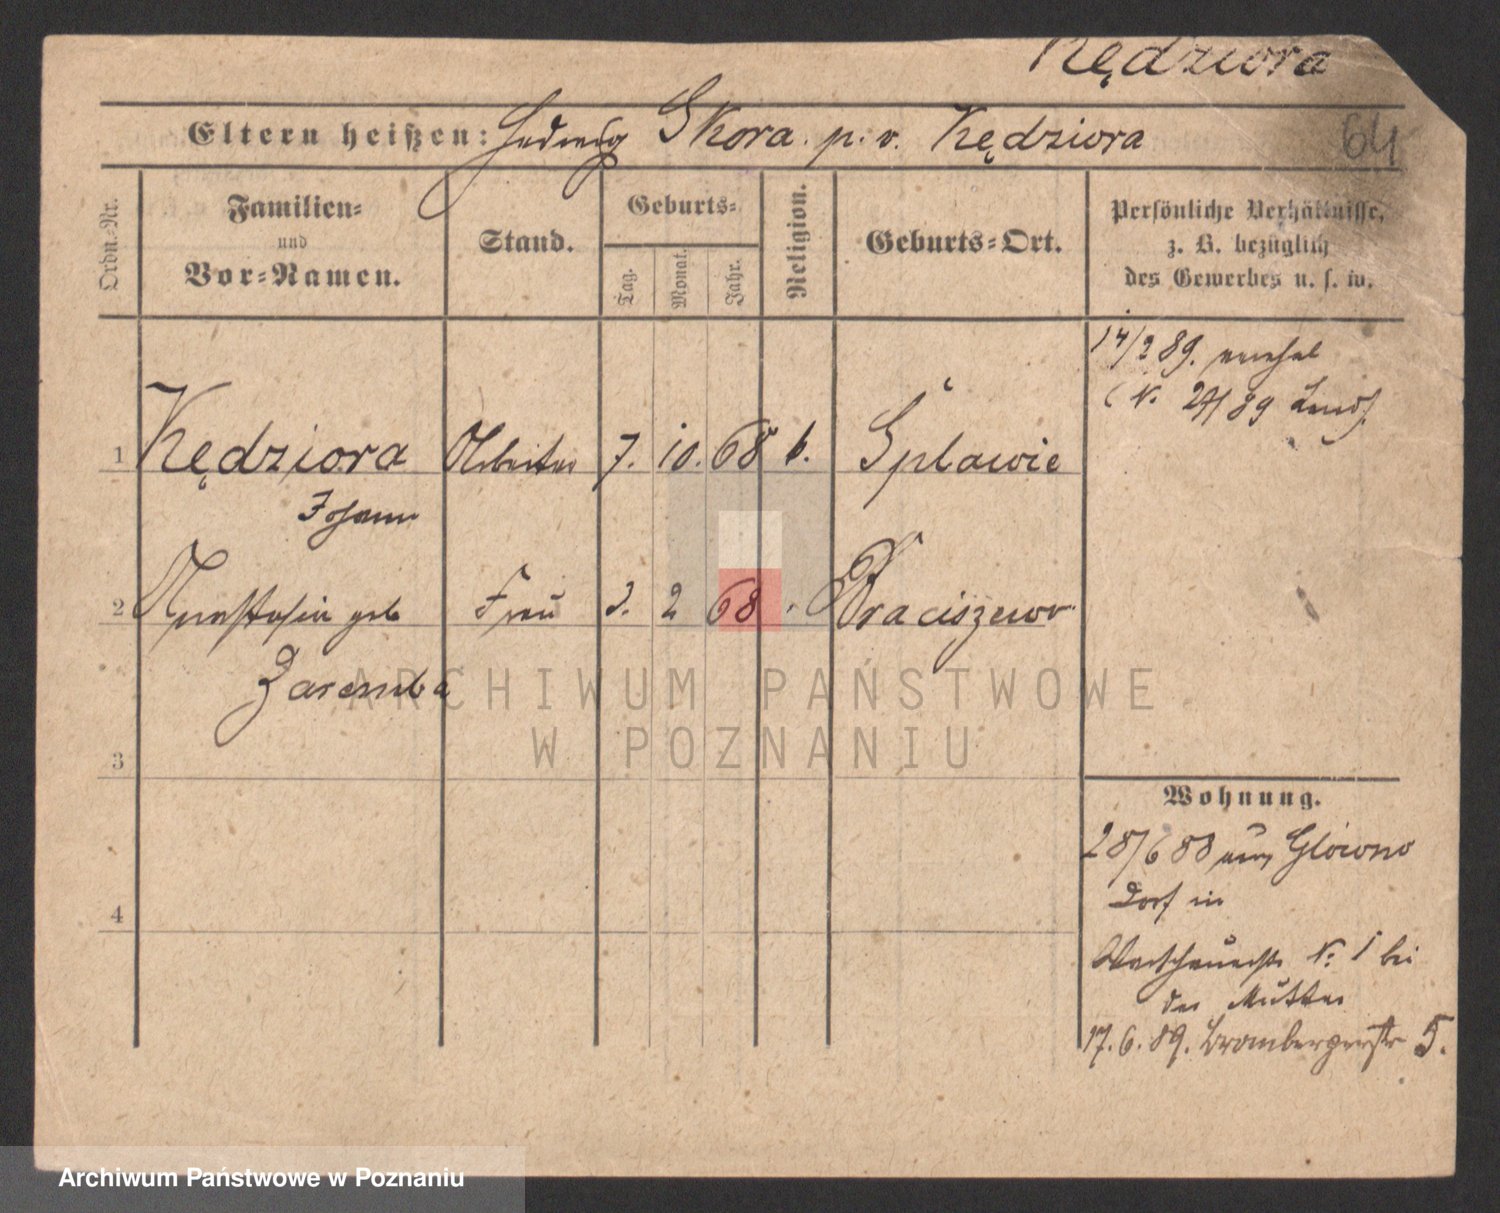 Kędziora
Eltern heißen: Hedwig Skora p. v. Kędziora
64
Ordn.-Nr.
Familien-
und
Vor-Namen.
Stand.
Geburts-
Tag.
Monat.
Jahr.
Religion.
Geburts-Ort.
Persönliche Verhältnisse,
z. B. bezüglich
des Gewerbes u. s. w.
14/2 89.
(N. 24/89
1 Kędziora Arbeiter 7. 10. 68 k. Splawie
Johann
2 Anastasia geb Frau 3. 2 68 Draciszewo
Zaremba
ARCHIWUM PAŃSTWOWE
W POZNANIU
3
4
Wohnung.
28/6 88 aus Glowno
Dorf in
N. 1 bei
der Mutter
17. 6. 89. Brombergerstr 5.
Archiwum Państwowe w Poznaniu